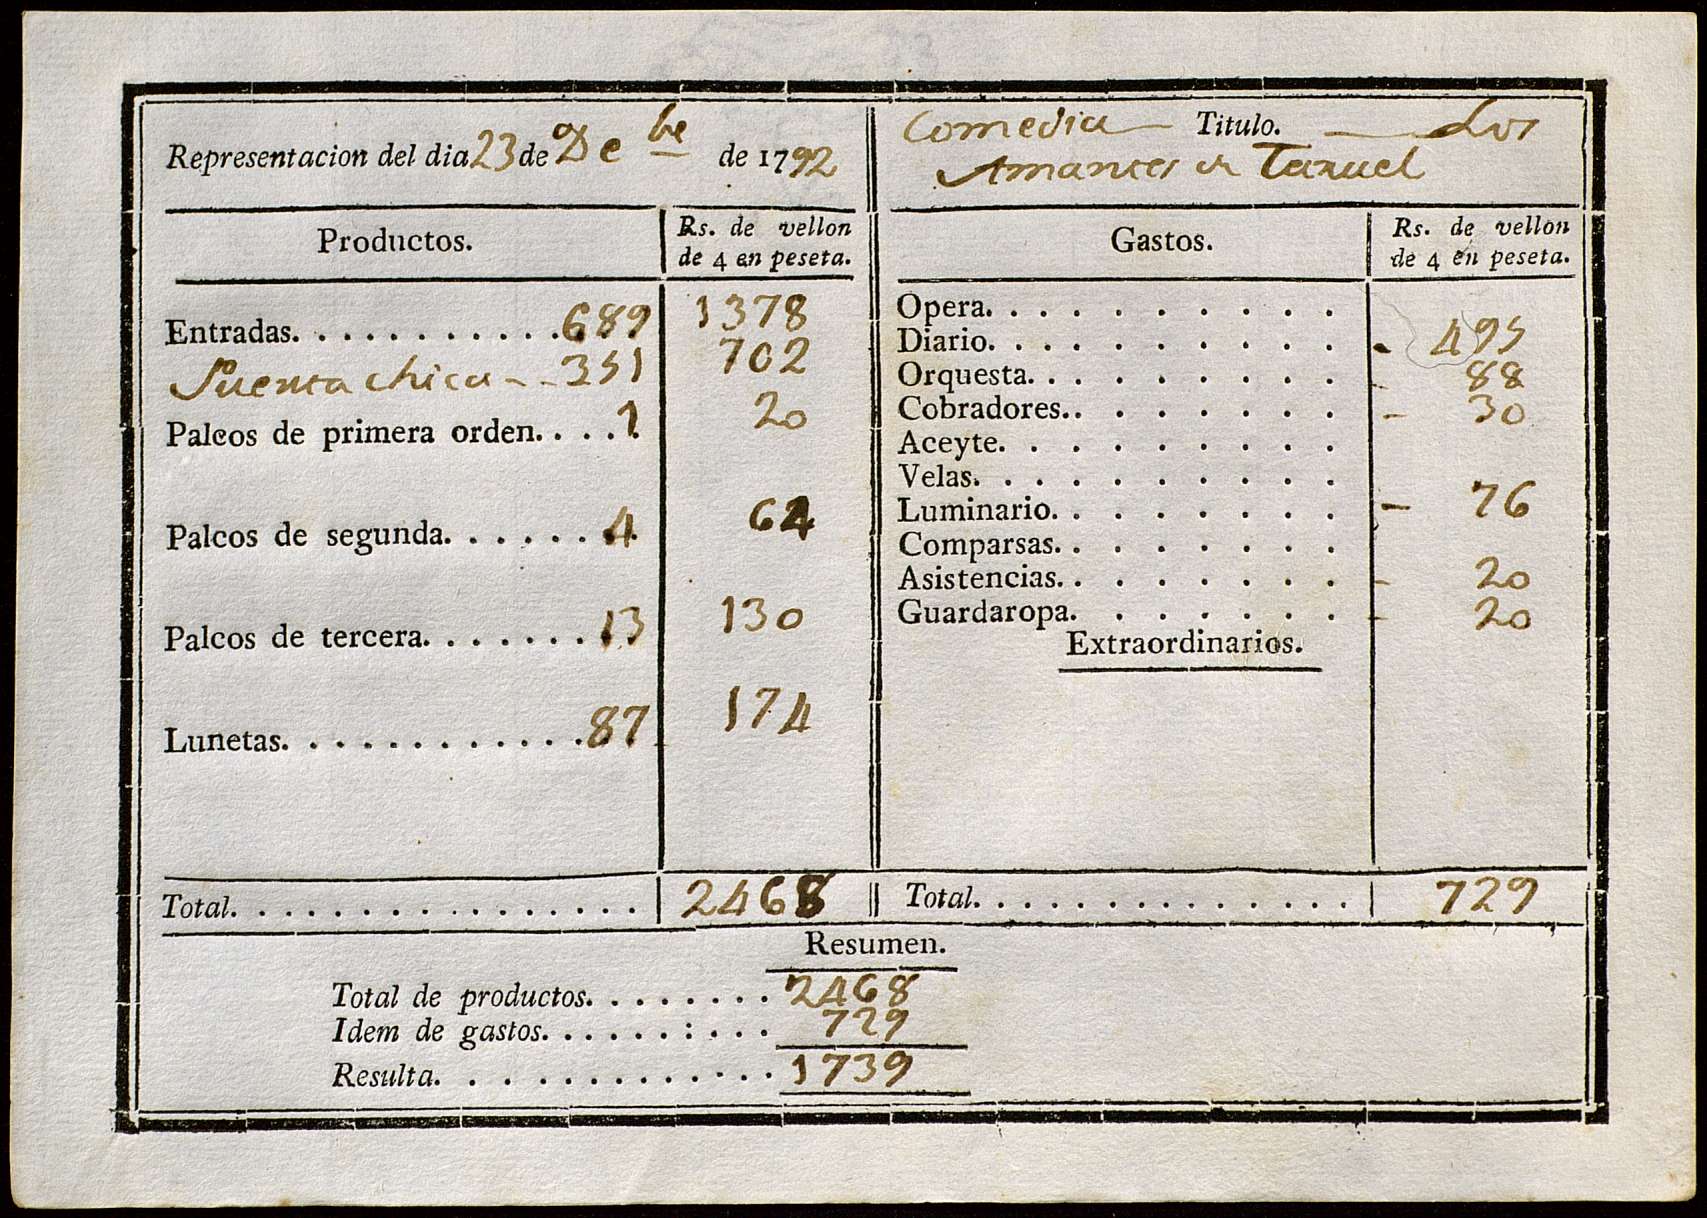 Representacion del dia 23 de De be de 1792
Comedia Titulo. Los
Amantes de Teruel
Productos.
Rs. de vellon
de 4 en peseta.
Gastos.
Rs. de vellon
de 4 en peseta.
Entradas. 689 1378
Puerta chica 351 702
Palcos de primera orden. 1 20
Palcos de segunda. 4 64
Palcos de tercera. 13 130
Lunetas. 87 174
Opera.
Diario. 495
Orquesta. 88
Cobradores. 30
Aceyte.
Velas.
Luminario. 76
Comparsas.
Asistencias. 20
Guardaropa. 20
Extraordinarios.
Total. 2468
Total. 729
Resumen.
Total de productos. 2468
Idem de gastos. 729
Resulta. 1739